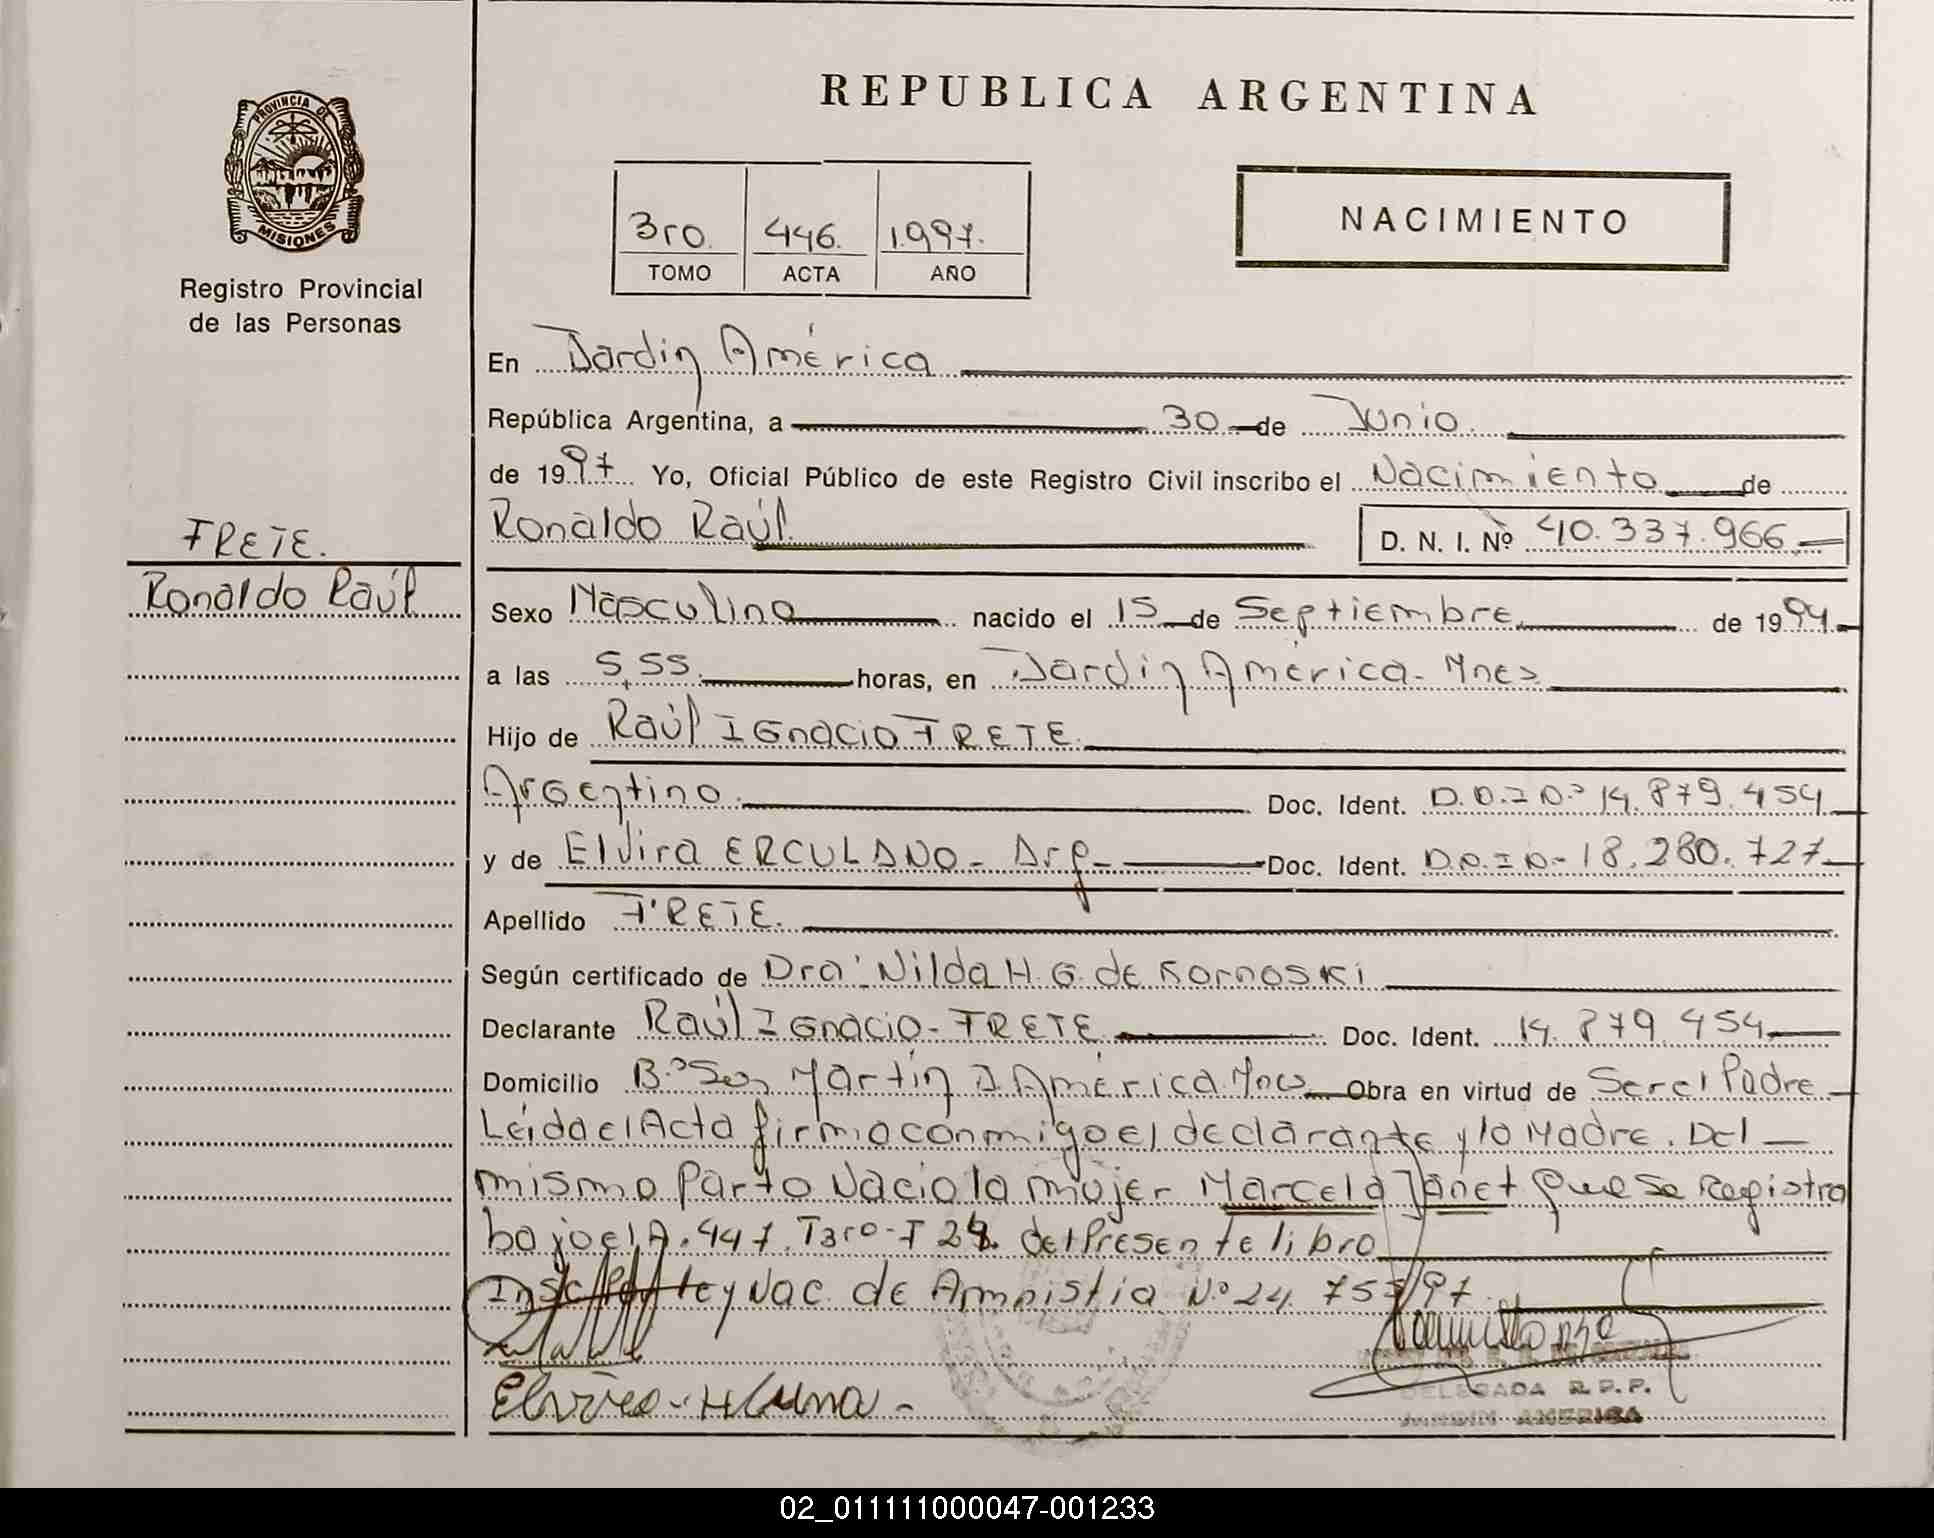 REPUBLICA ARGENTINA
PROVINCIA DE
MISIONES
Registro Provincial
de las Personas
3ro. 446. 1.997.
TOMO ACTA AÑO
NACIMIENTO
En Jardin América
República Argentina, a 30 de Junio.
de 1997. Yo, Oficial Público de este Registro Civil inscribo el Nacimiento de
Ronaldo Raúl. D. N. I. Nº 40.337.966
FRETE.
Ronaldo Raúl
Sexo Masculino nacido el 15 de Septiembre de 1994
a las 5,55. horas, en Jardin América - Mnes
Hijo de Raúl Ignacio FRETE.
Argentino. Doc. Ident. D.N.I Nº 14.879.454
y de Elvira ERCULANO - Arg - Doc. Ident. D.N.I N- 18.280.727
Apellido FRETE.
Según certificado de Dra. Nilda H. G. de Kornoski
Declarante Raúl Ignacio - FRETE Doc. Ident. 14.879.454
Domicilio Bº San Martin J América. Mnes Obra en virtud de Ser el Padre
Leida el Acta firma conmigo el declarante y la Madre. Del
mismo Parto Nacio la mujer Marcela Janet que se Registra
bajo el A. 447. T3ro - F 24. del Presente libro
Insc. Ley Nac. de Amnistia Nº 24.755/97.
DELEGADA R.P.P.
JARDIN AMERICA
02_011111000047-001233